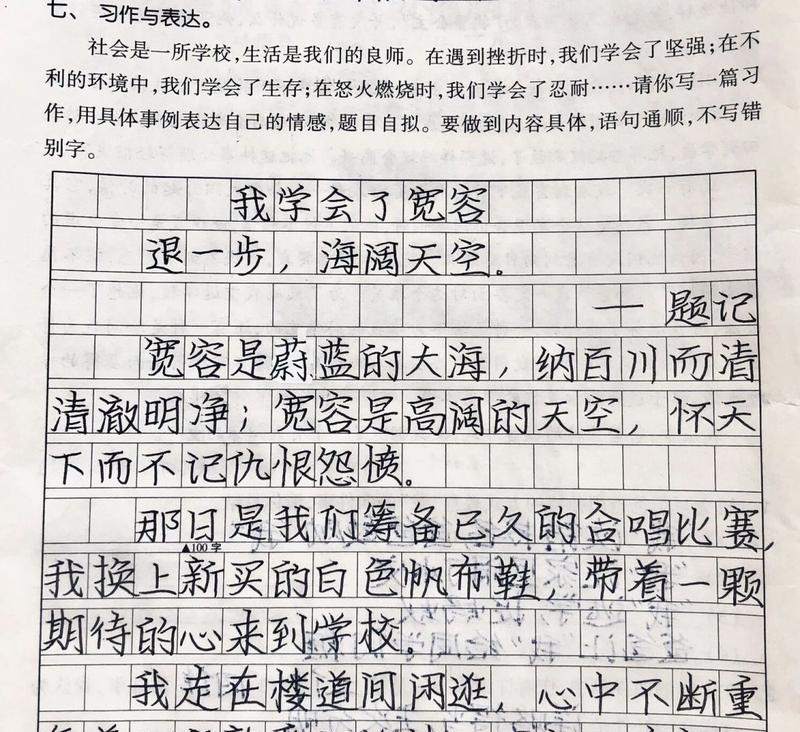 七、习作与表达。
社会是一所学校,生活是我们的良师。在遇到挫折时,我们学会了坚强;在不
利的环境中,我们学会了生存;在怒火燃烧时,我们学会了忍耐……请你写一篇习
作,用具体事例表达自己的情感,题目自拟。要做到内容具体,语句通顺,不写错
别字。
我学会了宽容
退一步,海阔天空。
— 题记
宽容是蔚蓝的大海,纳百川而清
清澈明净;宽容是高阔的天空,怀天
下而不记仇恨怨愤。
那日是我们筹备已久的合唱比赛,
▲100字
我换上新买的白色帆布鞋,带着一颗
期待的心来到学校。
我是在楼道间闲逛,心中不断重